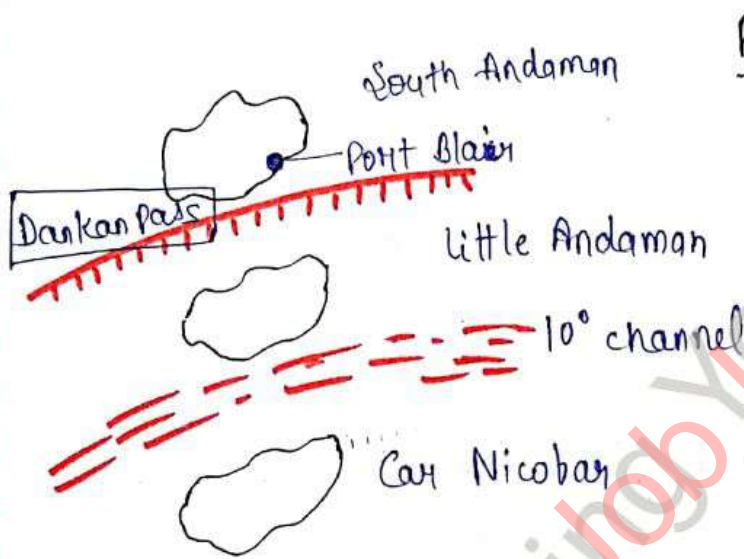 South Andaman
Port Blair
Dankan Pass
Little Andaman
10° channel
Car Nicobar